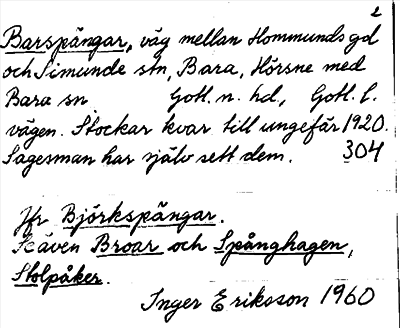 2
Barspängar, väg mellan Hommunds gd
och Simunde stn, Bara, Hörsne med
Bara sn. Gotl. n. hd., Gotl. l.
vägen. Stockar kvar till ungefär 1920.
Sagesman har själv sett dem. 304
Jfr Björkspängar.
Se även Broar och Spånghagen,
Stolpåker.
Inger Eriksson 1960